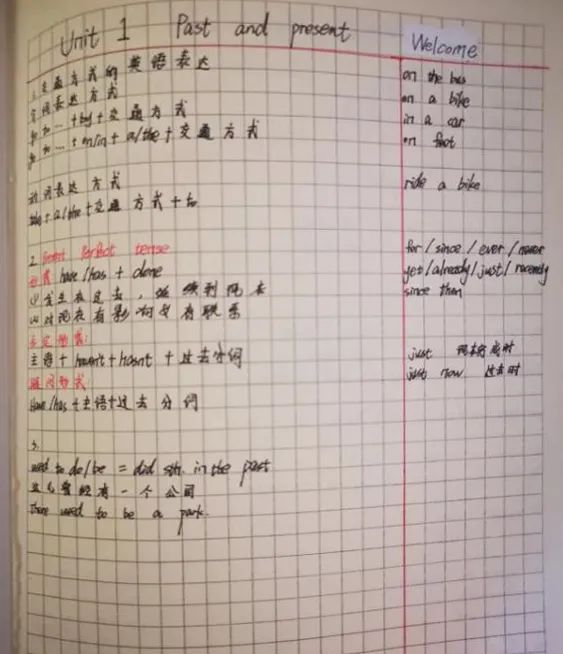 Unit 1 Past and present
Welcome
1.交通方式的英语表达
介词表达方式
+by+交通方式
+on/in+a/the+交通方式
on the bus
on a bike
in a car
on foot
动词表达方式
take+a/the+交通方式+to
ride a bike
2. Present Perfect tense
have/has + done
①发生在过去，继续到现在
②对现在有影响或有联系
否定句式:
主语 + haven't+hasn't +过去分词
疑问句式:
Have/has+主语+过去分词
for/since/ever/never
yet/already/just/recently
since then
just 现在完成时
just now 过去时
3.
used to do/be = did sth. in the past
这儿曾经有一个公园
there used to be a park.